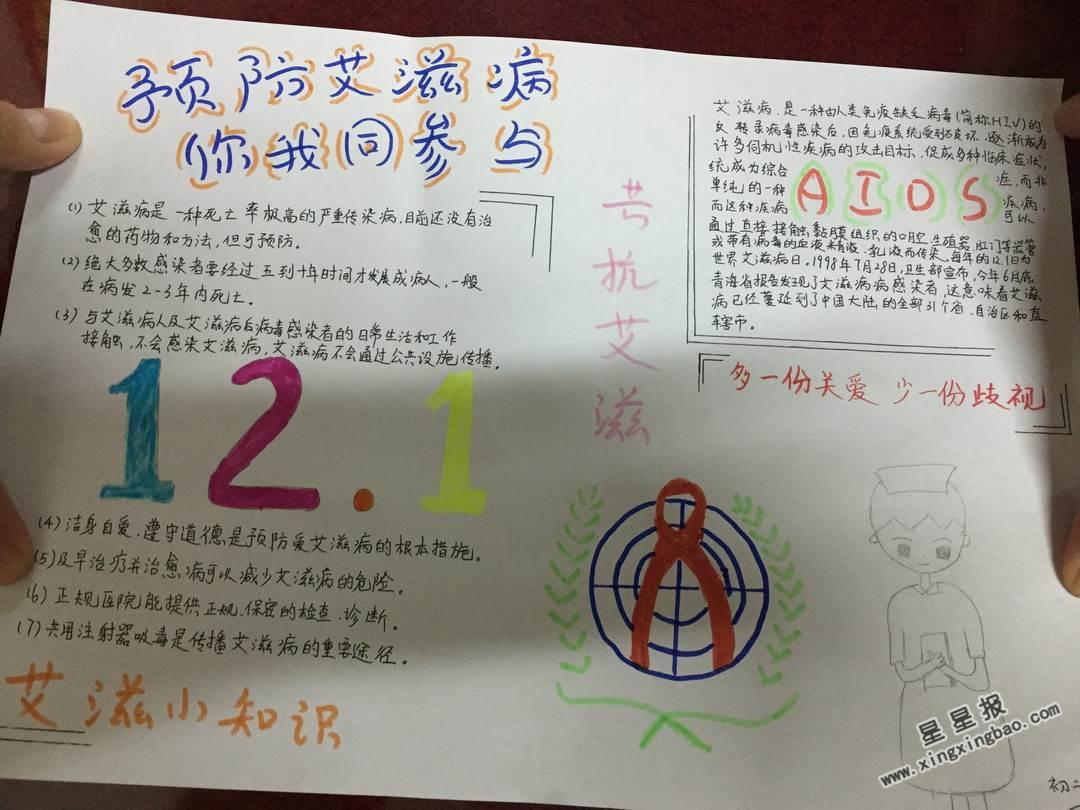 预防艾滋病
你我同参与
(1) 艾滋病是一种死亡率极高的严重传染病,目前还没有治
愈的药物和方法,但可预防。
(2) 绝大多数感染者要经过五到十年时间才发展成病人,一般
在病发2-3年内死亡。
(3) 与艾滋病人及艾滋病后病毒感染者的日常生活和工作
接触,不会感染艾滋病,艾滋病不会通过公共设施传播。
12.1
(4) 洁身自爱、遵守道德是预防爱艾滋病的根本措施。
(5) 及早治疗并治愈病可以减少艾滋病的危险。
(6) 正规医院能提供正规、保密的检查、诊断。
(7) 共用注射器吸毒是传播艾滋病的重要途径。
艾滋小知识
抗艾滋
艾滋病,是一种由人类免疫缺乏病毒(简称HIV)的
反转录病毒感染后,因免疫系统受到破坏,逐渐成为
许多伺机性疾病的攻击目标,促成多种临床症状,
统成为综合症,而非
单纯的一种疾病,
而这种疾病可以
AIDS
通过直接接触黏膜组织的口腔、生殖器、肛门等器官
或带有病毒的血液、精液、乳液而传染。每年的12.1日为
世界艾滋病日。1998年7月28日,卫生部宣布,今年6月底
青海省报告发现了艾滋病病感染者,这意味着艾滋
病已经蔓延到了中国大陆的全部31个省、自治区和直
辖市。
多一份关爱 少一份歧视
星星报
www.xingxingbao.com
初二